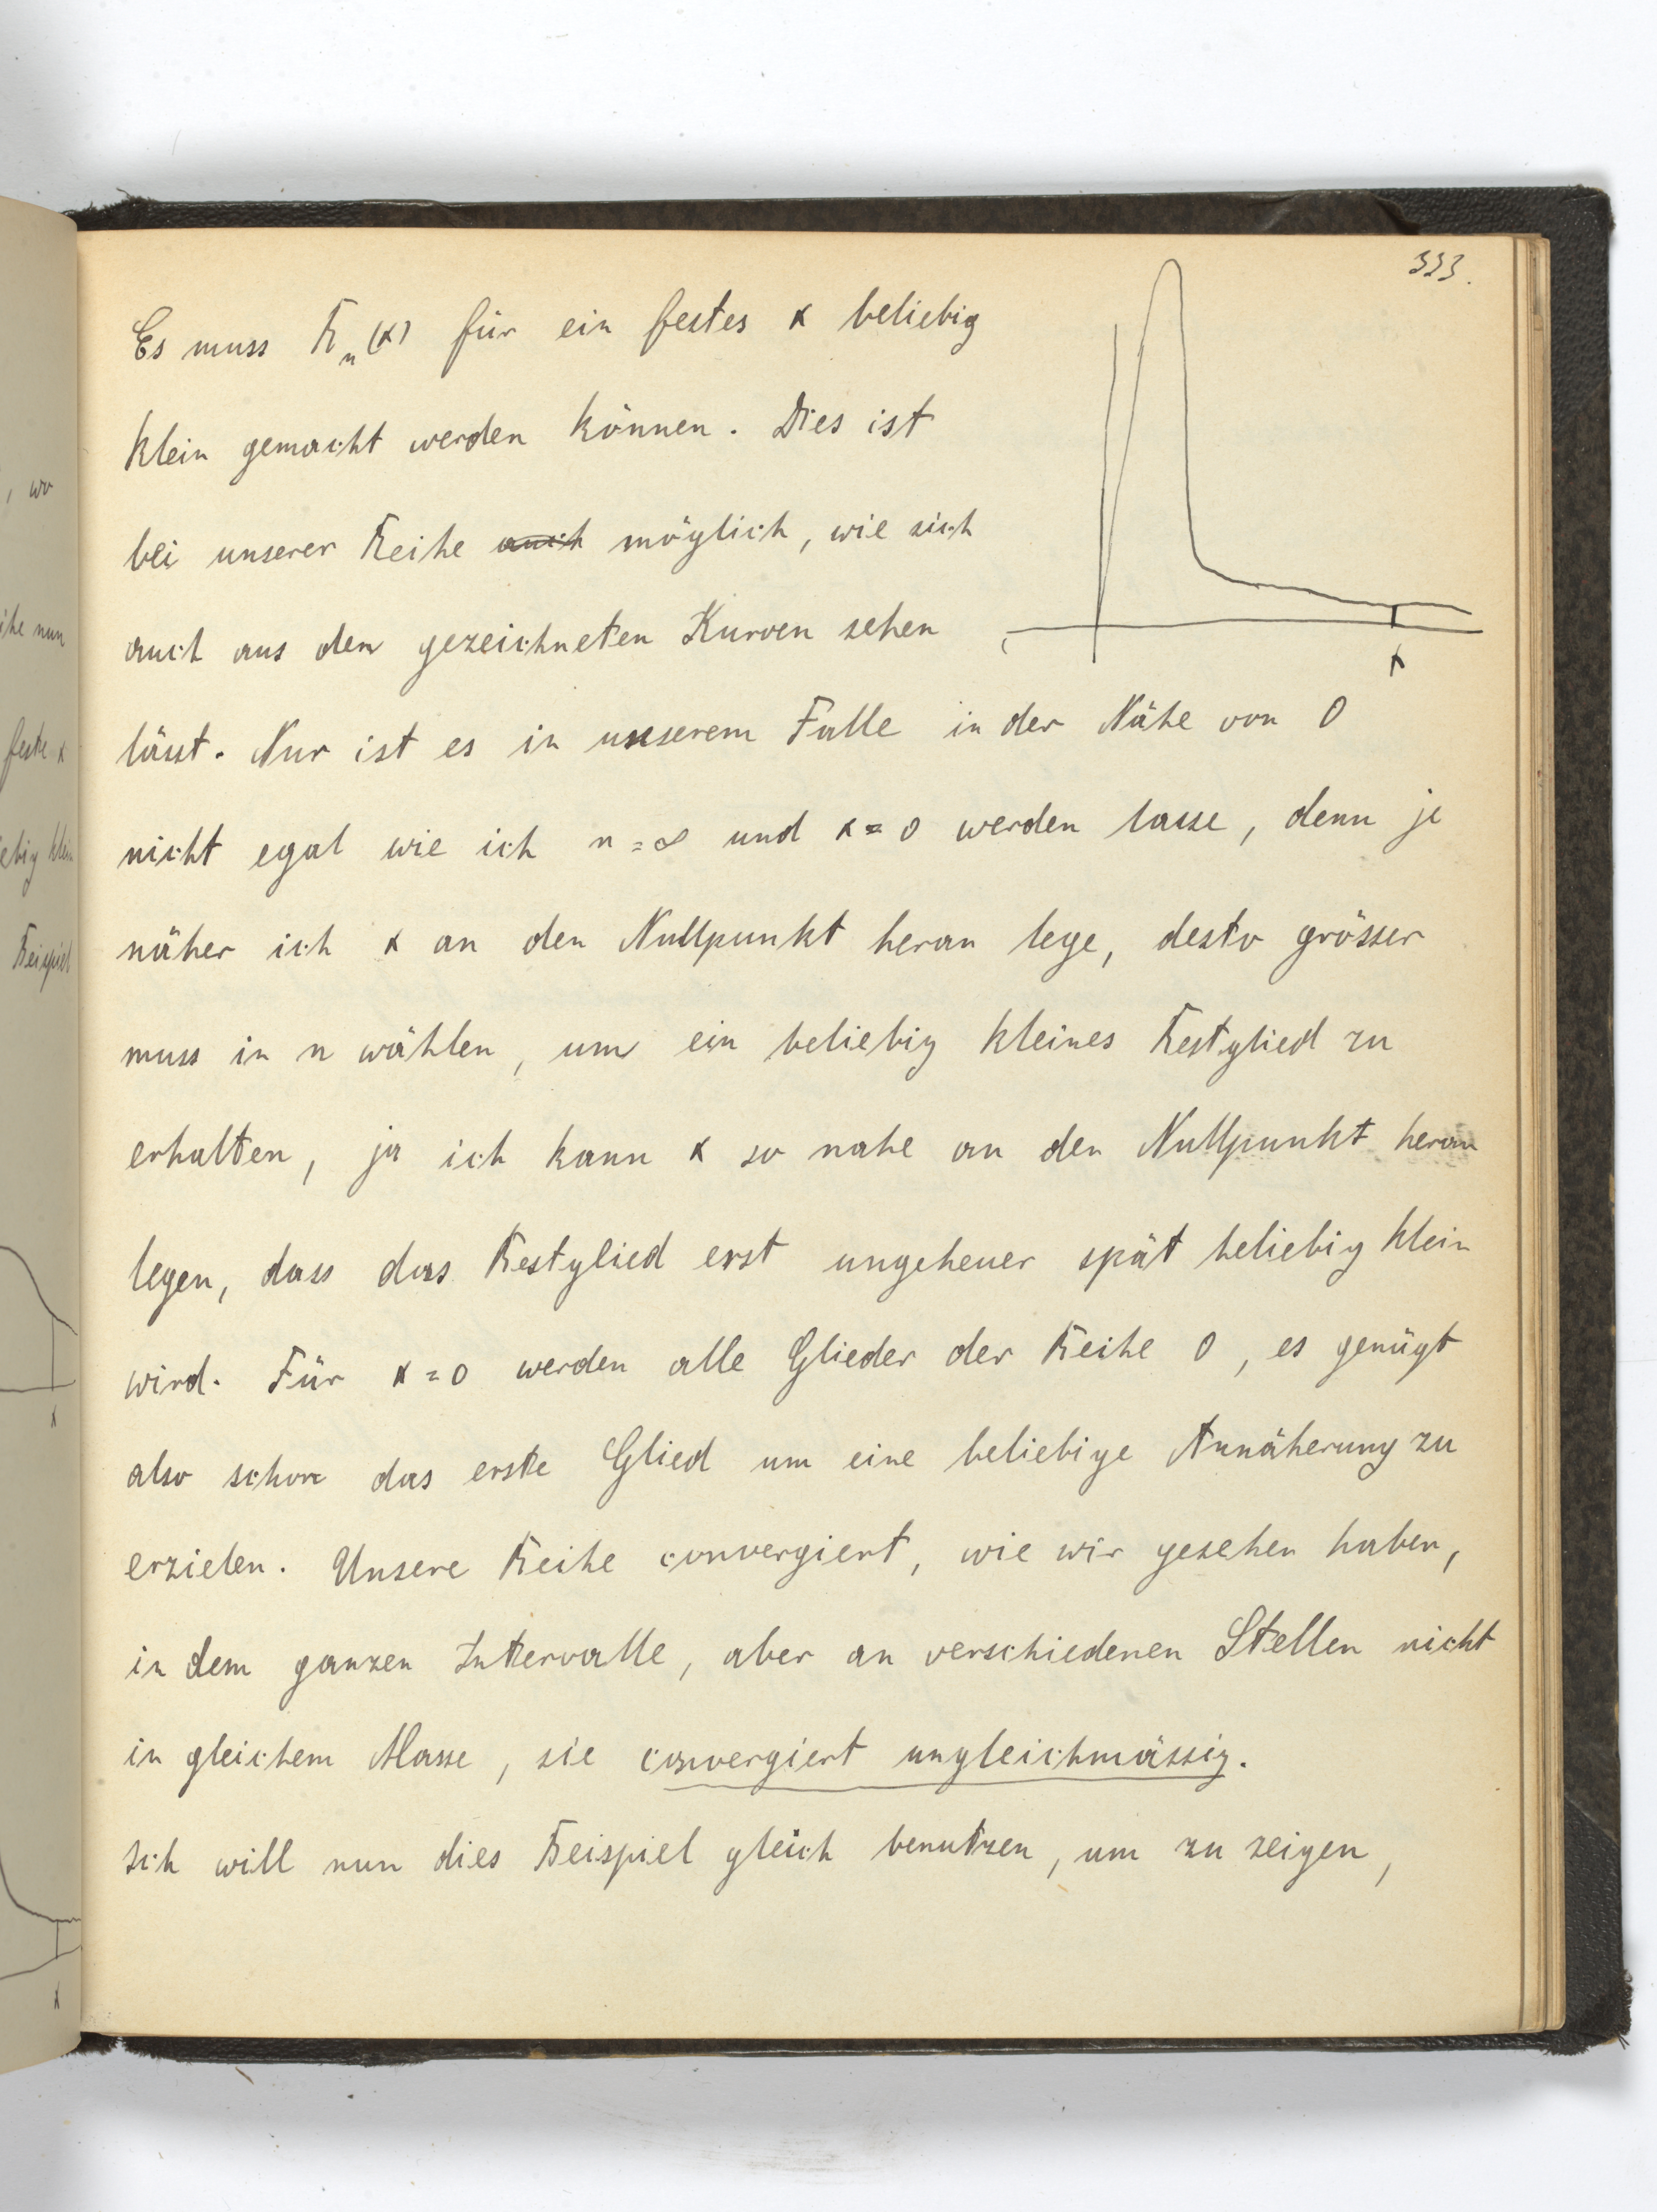 333.
Es muss R_n(x) für ein festes x beliebig
klein gemacht werden können. Dies ist
bei unserer Reihe auch möglich, wie sich
auch aus den gezeichneten Kurven sehen
x
lässt. Nur ist es in unserem Falle in der Nähe von 0
nicht egal wie ich n=∞ und x=0 werden lasse, denn je
näher ich x an den Nullpunkt heran lege, desto grösser
muss in n wählen, um ein beliebig kleines Restglied zu
erhalten, ja ich kann x so nahe an den Nullpunkt heran
legen, dass das Restglied erst ungeheuer spät beliebig klein
wird. Für x=0 werden alle Glieder der Reihe 0, es genügt
also schon das erste Glied um eine beliebige Annäherung zu
erzielen. Unsere Reihe convergiert, wie wir gesehen haben,
in dem ganzen Intervalle, aber an verschiedenen Stellen nicht
in gleichem Masse, sie convergiert ungleichmässig.
Ich will nun dies Beispiel gleich benutzen, um zu zeigen,
, wo
ihe nun
feste x
ebig klein
Beispiel
x
x